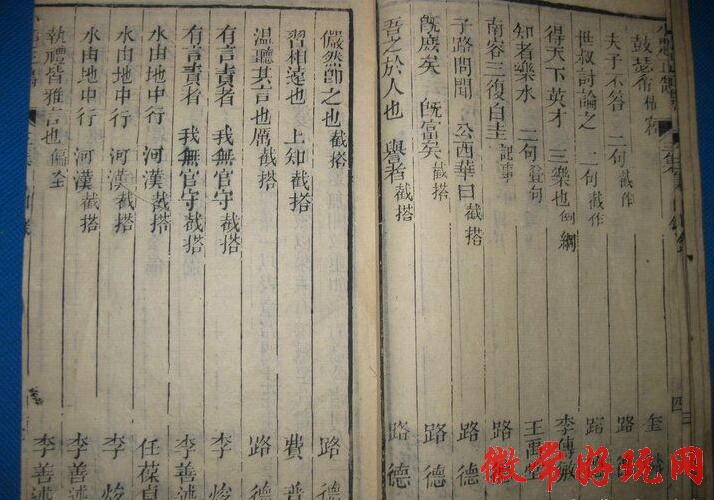 鼓瑟希
夫子不答 二句 截作 路
世叔討論之 二句 截作 路
得天下英才 三樂也 倒綱 李傳敏
知者樂水 二句 疊句 王禹
南容三復白圭 記事 路
子路問聞 公西華曰 截搭 路德
既庶矣 既富矣 截搭 路德
吾之於人也 譽者 截搭 路德
儼然即之也 截搭 路德
習相遠也 上知 截搭 費
溫聽其言也厲 截搭 路德
有言責者 我無官守 截搭 李
有言責者 我無官守 截搭 李善
水由地中行 河漢 截搭 任葆貞
水由地中行 河漢 截搭 李
水由地中行 河漢 截搭 李善
執禮皆雅言也 偏全 李善
徽常好玩网